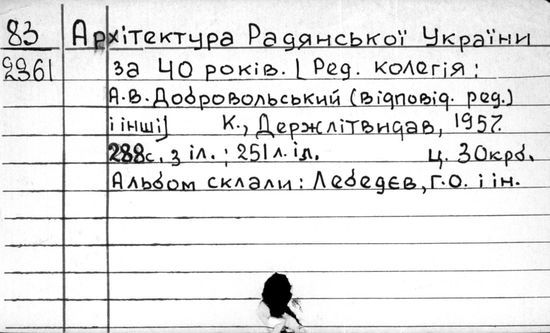 83 Архітектура Радянської України
22361 за 40 років. [Ред. колегія:
А.В.Добровольський (відповід. ред.)
і інші] К., Держлітвидав, 1957.
288с. з іл.; 251л. іл. ц. 30крб.
Альбом склали: Лебедєв, Г.О. і ін.